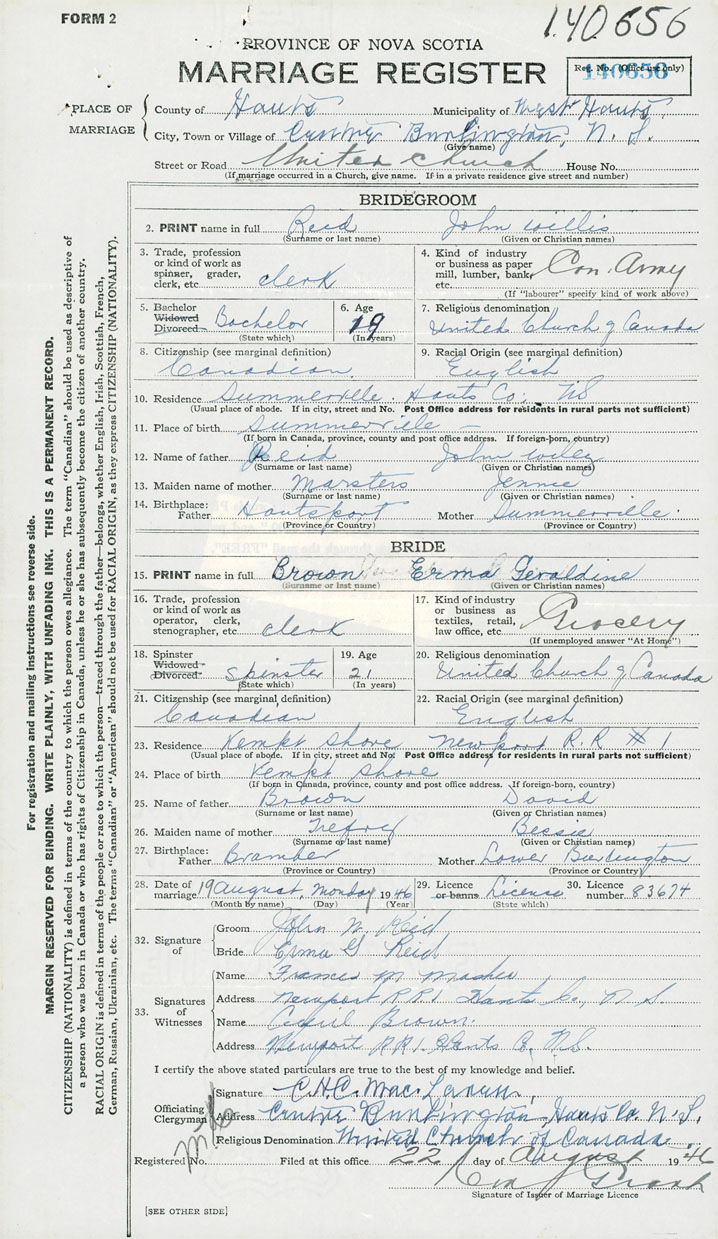 FORM 2
140656
PROVINCE OF NOVA SCOTIA
MARRIAGE REGISTER
Reg. No. (Office use only)
140656
PLACE OF MARRIAGE
County of Hants Municipality of West Hants
City, Town or Village of Centre Burlington, N. S.
(Give name)
Street or Road United Church House No.
(If marriage occurred in a Church, give name. If in a private residence give street and number)
BRIDEGROOM
2. PRINT name in full Reid John Willis
(Surname or last name) (Given or Christian names)
3. Trade, profession or kind of work as spinner, grader, clerk, etc. clerk
4. Kind of industry or business as paper mill, lumber, bank, etc. Can. Army
(If "labourer" specify kind of work above)
5. Bachelor Widowed Divorced Bachelor
(State which)
6. Age 19
(In years)
7. Religious denomination
United Church of Canada
8. Citizenship (see marginal definition)
Canadian
9. Racial Origin (see marginal definition)
English
10. Residence Summerville Hants Co. NS
(Usual place of abode. If in city, street and No. Post Office address for residents in rural parts not sufficient)
11. Place of birth Summerville
(If born in Canada, province, county and post office address. If foreign-born, country)
12. Name of father Reid John Wiley
(Surname or last name) (Given or Christian names)
13. Maiden name of mother Marsters Jennie
(Surname or last name) (Given or Christian names)
14. Birthplace: Father Hantsport Mother Summerville
(Province or Country) (Province or Country)
BRIDE
15. PRINT name in full Brown Erma Geraldine
(Surname or last name) (Given or Christian names)
16. Trade, profession or kind of work as operator, clerk, stenographer, etc. clerk
17. Kind of industry or business as textiles, retail, law office, etc. Grocery
(If unemployed answer "At Home")
18. Spinster Widowed Divorced Spinster
(State which)
19. Age 21
(In years)
20. Religious denomination
United Church of Canada
21. Citizenship (see marginal definition)
Canadian
22. Racial Origin (see marginal definition)
English
23. Residence Kempt Shore Newport R.R # 1
(Usual place of abode. If in city, street and No. Post Office address for residents in rural parts not sufficient)
24. Place of birth Kempt Shore
(If born in Canada, province, county and post office address. If foreign-born, country)
25. Name of father Brown David
(Surname or last name) (Given or Christian names)
26. Maiden name of mother Trefry Bessie
(Surname or last name) (Given or Christian names)
27. Birthplace: Father Bramber Mother Lower Burlington
(Province or Country) (Province or Country)
28. Date of marriage 19 August, Monday 1946
(Month by name) (Day) (Year)
29. Licence or banns License
(State which)
30. Licence number 83674
32. Signature of
Groom John W Reid
Bride Erma G Reid
33. Signatures of Witnesses
Name Frances M Mosher
Address Newport R.R.1 Hants Co., N S.
Name Cecil Brown.
Address Newport R.R 1. Hants Co. N.S.
I certify the above stated particulars are true to the best of my knowledge and belief.
Officiating Clergyman
Signature C.H.C. MacLaren,
Address Centre Burlington Hants Co. N. S.
Religious Denomination United Church of Canada.
Registered No. Filed at this office 22 day of August 1946
Signature of Issuer of Marriage Licence
[SEE OTHER SIDE]
For registration and mailing instructions see reverse side.
MARGIN RESERVED FOR BINDING. WRITE PLAINLY, WITH UNFADING INK. THIS IS A PERMANENT RECORD.
CITIZENSHIP (NATIONALITY) is defined in terms of the country to which the person owes allegiance. The term "Canadian" should be used as descriptive of
a person who was born in Canada or who has rights of Citizenship in Canada, unless he or she has subsequently become the citizen of another country.
RACIAL ORIGIN is defined in terms of the people or race to which the person—traced through the father—belongs, whether English, Irish, Scottish, French,
German, Russian, Ukrainian, etc. The terms "Canadian" or "American" should not be used for RACIAL ORIGIN, as they express CITIZENSHIP (NATIONALITY).